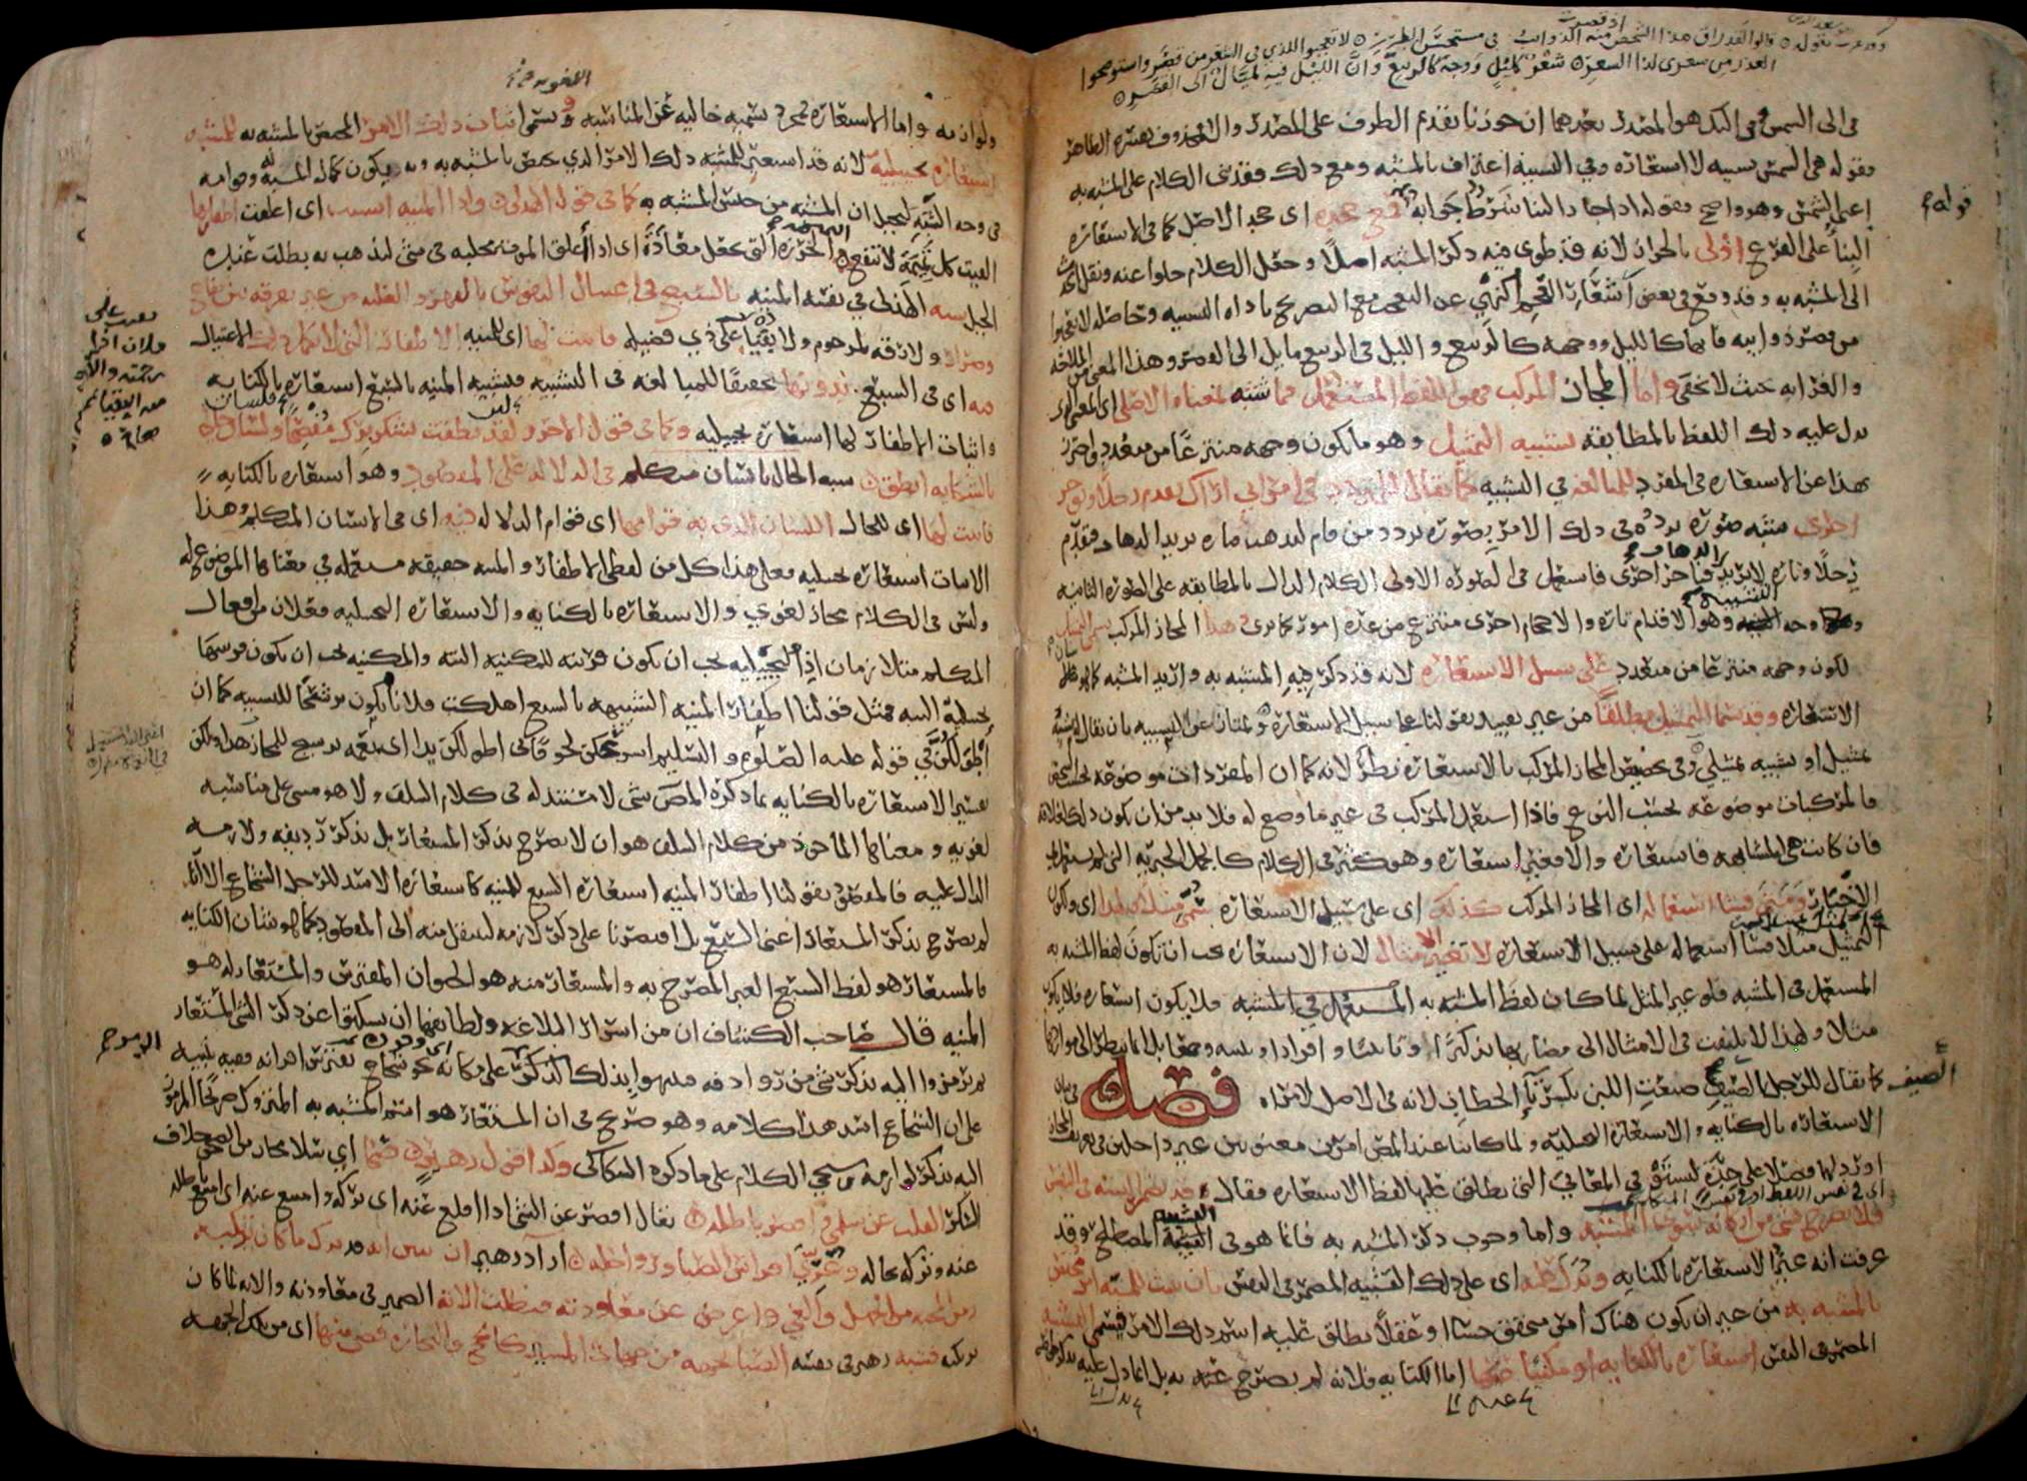 في الى الشمس في الذكر هو المصدر بعدهما ان جوزنا تقديم الظرف على المصدر والا فمحذوف يفسره الظاهر
فقوله هي الشمس تشبيه لا استعارة وفي التشبيه اعتراف بالمشبه ومع ذلك فقد بنى الكلام على المشبه به
اعني الشمس وهو واضح فقوله اذا جاز البناء شرط جوابه فمع جحده اى جحد الاصل كما في الاستعارة
البناء على الفرع اولى بالجواز لانه قد طوى فيه ذكر المشبه اصلا وجعل الكلام خلوا عنه ونقل الحديث
الى المشبه به وقد وقع في بعض اشعار العجم النهي عن التعجب مع التصريح باداة التشبيه وحاصله لا تعجبوا
من قصر ذوايبه فانها كالليل ووجهه كالربيع والليل في الربيع مايل الى القصر وهذا المعنى من الملاحة
والغرابة بحيث لا يخفى واما المجاز المركب فهو اللفظ المستعمل فيما شبه بمعناه الاصلي اى المعنى الذي
يدل عليه ذلك اللفظ بالمطابقة تشبيه التمثيل وهو ما يكون وجهه منتزعا من متعدد واحترز
بهذا عن الاستعارة في المفرد للمبالغة في التشبيه كما يقال للمتردد في امر اني اراك تقدم رجلا وتؤخر
اخرى شبه صورة تردده في ذلك الامر بصورة تردد من قام ليذهب فتارة يريد الذهاب فيقدم
رجلا وتارة لا يريد فيؤخر اخرى فاستعمل في الصورة الاولى الكلام الدال بالمطابقة على الصورة الثانية
ووجه الشبه وهو الاقدام تارة والاحجام اخرى منتزع من عدة امور كما ترى وهذا المجاز المركب يسمى التمثيل
لكون وجهه منتزعا من متعدد على سبيل الاستعارة لانه قد ذكر فيه المشبه به واريد المشبه كما هو شان
الاستعارة وقد يسمى التمثيل مطلقا من غير تقييد بقولنا على سبيل الاستعارة ويمتاز عن التشبيه بان يقال له تشبيه
تمثيل او تشبيه تمثيلي وفي تخصيص المجاز المركب بالاستعارة نظر لانه كما ان المفردات موضوعة بحسب الشخص
فالمركبات موضوعة بحسب النوع فاذا استعمل المركب في غير ما وضع له فلا بد من ان يكون ذلك لعلاقة
فان كانت هي المشابهة فاستعارة والا فغير استعارة وهو كثير في الكلام كالجمل الخبرية التي لم تستعمل في
الاخبار ومتى فشا استعماله اى المجاز المركب كذلك اى على سبيل الاستعارة سمي مثلا ولهذا اى ولكون
التمثيل مثلا فشا استعماله على سبيل الاستعارة لا تغير الامثال لان الاستعارة يجب ان تكون لفظ المشبه به
المستعمل في المشبه فلو غير المثل لما كان لفظ المشبه به المستعمل في المشبه فلا يكون استعارة فلا يكون
مثلا ولهذا لا يلتفت في الامثال الى مضاربها تذكيرا وتانيثا وافرادا وتثنية وجمعا بل انما ينظر الى مواردها
كما يقال للرجل الصيف ضيعت اللبن بكسر تاء الخطاب لانه في الاصل لامراة فصل في بيان
الاستعارة بالكناية والاستعارة التخييلية ولما كانتا عند المصنف امرين معنويين غير داخلين في تعريف المجاز
اورد لهما فصلا على حدة ليستوفي المعاني التي يطلق عليها لفظ الاستعارة فقال قد يضمر التشبيه في النفس
فلا يصرح بشي من اركانه سوى المشبه واما وجوب ذكر المشبه به فانما هو في التشبيه المصطلح وقد
عرفت انه غير الاستعارة بالكناية ويدل عليه اى على ذلك التشبيه المضمر في النفس بان يثبت للمشبه امر مختص
بالمشبه به من غير ان يكون هناك امر متحقق حسا او عقلا يطلق عليه اسم ذلك الامر فيسمى التشبيه
المضمر في النفس استعارة بالكناية او مكنيا عنها اما الكناية فلانه لم يصرح به بل انما دل عليه بذكر خواصه
ولوازمه واما الاستعارة فمجرد تسمية خالية عن المناسبة ويسمى اثبات ذلك الامر المختص بالمشبه به للمشبه
استعارة تخييلية لانه قد استعير للمشبه ذلك الامر الذي يخص بالمشبه به وبه يكون كمال المشبه به وقوامه
في وجه الشبه ليخيل ان المشبه من جنس المشبه به كما في قول الهذلي واذا المنية انشبت اى اعلقت اظفارها
الفيت كل تميمة لا تنفع التميمة الخرزة التي تجعل معاذة اى اذا اعلق الموت مخلبه في شي ليذهب به بطلت عنده
الحيل شبه الهذلي في نفسه المنية بالسبع في اغتيال النفوس بالقهر والغلبة من غير تفرقة بين نفاع
وضرار ولا رقة لمرحوم ولا بقيا على ذي فضيلة فاثبت لها اى للمنية الاظفار التي لا يكمل ذلك الاغتيال
فيه اى في السبع بدونها تحقيقا للمبالغة في التشبيه فتشبيه المنية بالسبع استعارة بالكناية
واثبات الاظفار لها استعارة تخييلية وكما في قول الاخر ولئن نطقت بشكر برك مفصحا فلسان حالي
بالشكاية انطق شبه الحال بانسان متكلم في الدلالة على المقصود وهو استعارة بالكناية
فاثبت لها اى للحال اللسان الذي به قوامها اى قوام الدلالة فيه اى في الانسان المتكلم وهذا
الاثبات استعارة تخييلية فعلى هذا كل من لفظي الاظفار والمنية حقيقة مستعملة في معناها الموضوع له
وليس في الكلام مجاز لغوي والاستعارة بالكناية والاستعارة التخييلية فعلان من افعال
المتكلم متلازمان اذ التخييلية يجب ان تكون قرينة للمكنية البتة والمكنية يجب ان يكون قرينتها
تخييلية البتة فمثل قولنا اظفار المنية الشبيهة بالسبع اهلكت فلانا يكون ترشيحا للتشبيه كما ان
اطولكن في قوله عليه الصلوة والسلام اسرعكن لحوقا بي اطولكن يدا اى نعمة ترشيح للمجاز هذا ولكن
تفسير الاستعارة بالكناية بما ذكره المصنف شي لا مستند له في كلام السلف ولا هو مبني على مناسبة
لغوية ومعناها الماخوذ من كلام السلف هو ان لا يصرح بذكر المستعار بل بذكر رديفه ولازمه
الدال عليه فالمقصود بقولنا اظفار المنية استعارة السبع للمنية كاستعارة الاسد للرجل الشجاع الا انا
لم نصرح بذكر المستعار اعني السبع بل اقتصرنا على ذكر لازمه لينتقل منه الى المقصود كما هو شان الكناية
فالمستعار هو لفظ السبع الغير المصرح به والمستعار منه هو الحيوان المفترس والمستعار له هو
المنية قال صاحب الكشاف ان من اسرار البلاغة ولطايفها ان يسكتوا عن ذكر الشي المستعار
ثم يرمزوا اليه بذكر شي من روادفه فينبهوا بذلك الذكر على مكانه نحو شجاع يفترس اقرانه ففيه تنبيه
على ان الشجاع اسد هذا كلامه وهو صريح في ان المستعار هو اسم المشبه به المتروك صريحا المرموز
اليه بذكر لوازمه وسيجي الكلام على ما ذكره السكاكى وكذا قول زهير صحا اي سلا مجازا من الصحو خلاف
السكر القلب عن سلمى واقصر باطله يقال اقصر عن الشي اذا اقلع عنه اى تركه وامتنع عنه اى امتنع باطله
عنه وتركه بحاله وعري افراس الصبا ورواحله اراد زهير ان يبين انه ترك ما كان يرتكبه
زمن المحبة من الجهل والغي واعرض عن معاودته فبطلت الاته الضمير في معاودته والاته لما كان
يرتكبه فشبه زهير في نفسه الصبا بجهة من جهات المسير كالحج والتجارة قضى منها اى من تلك الجهة